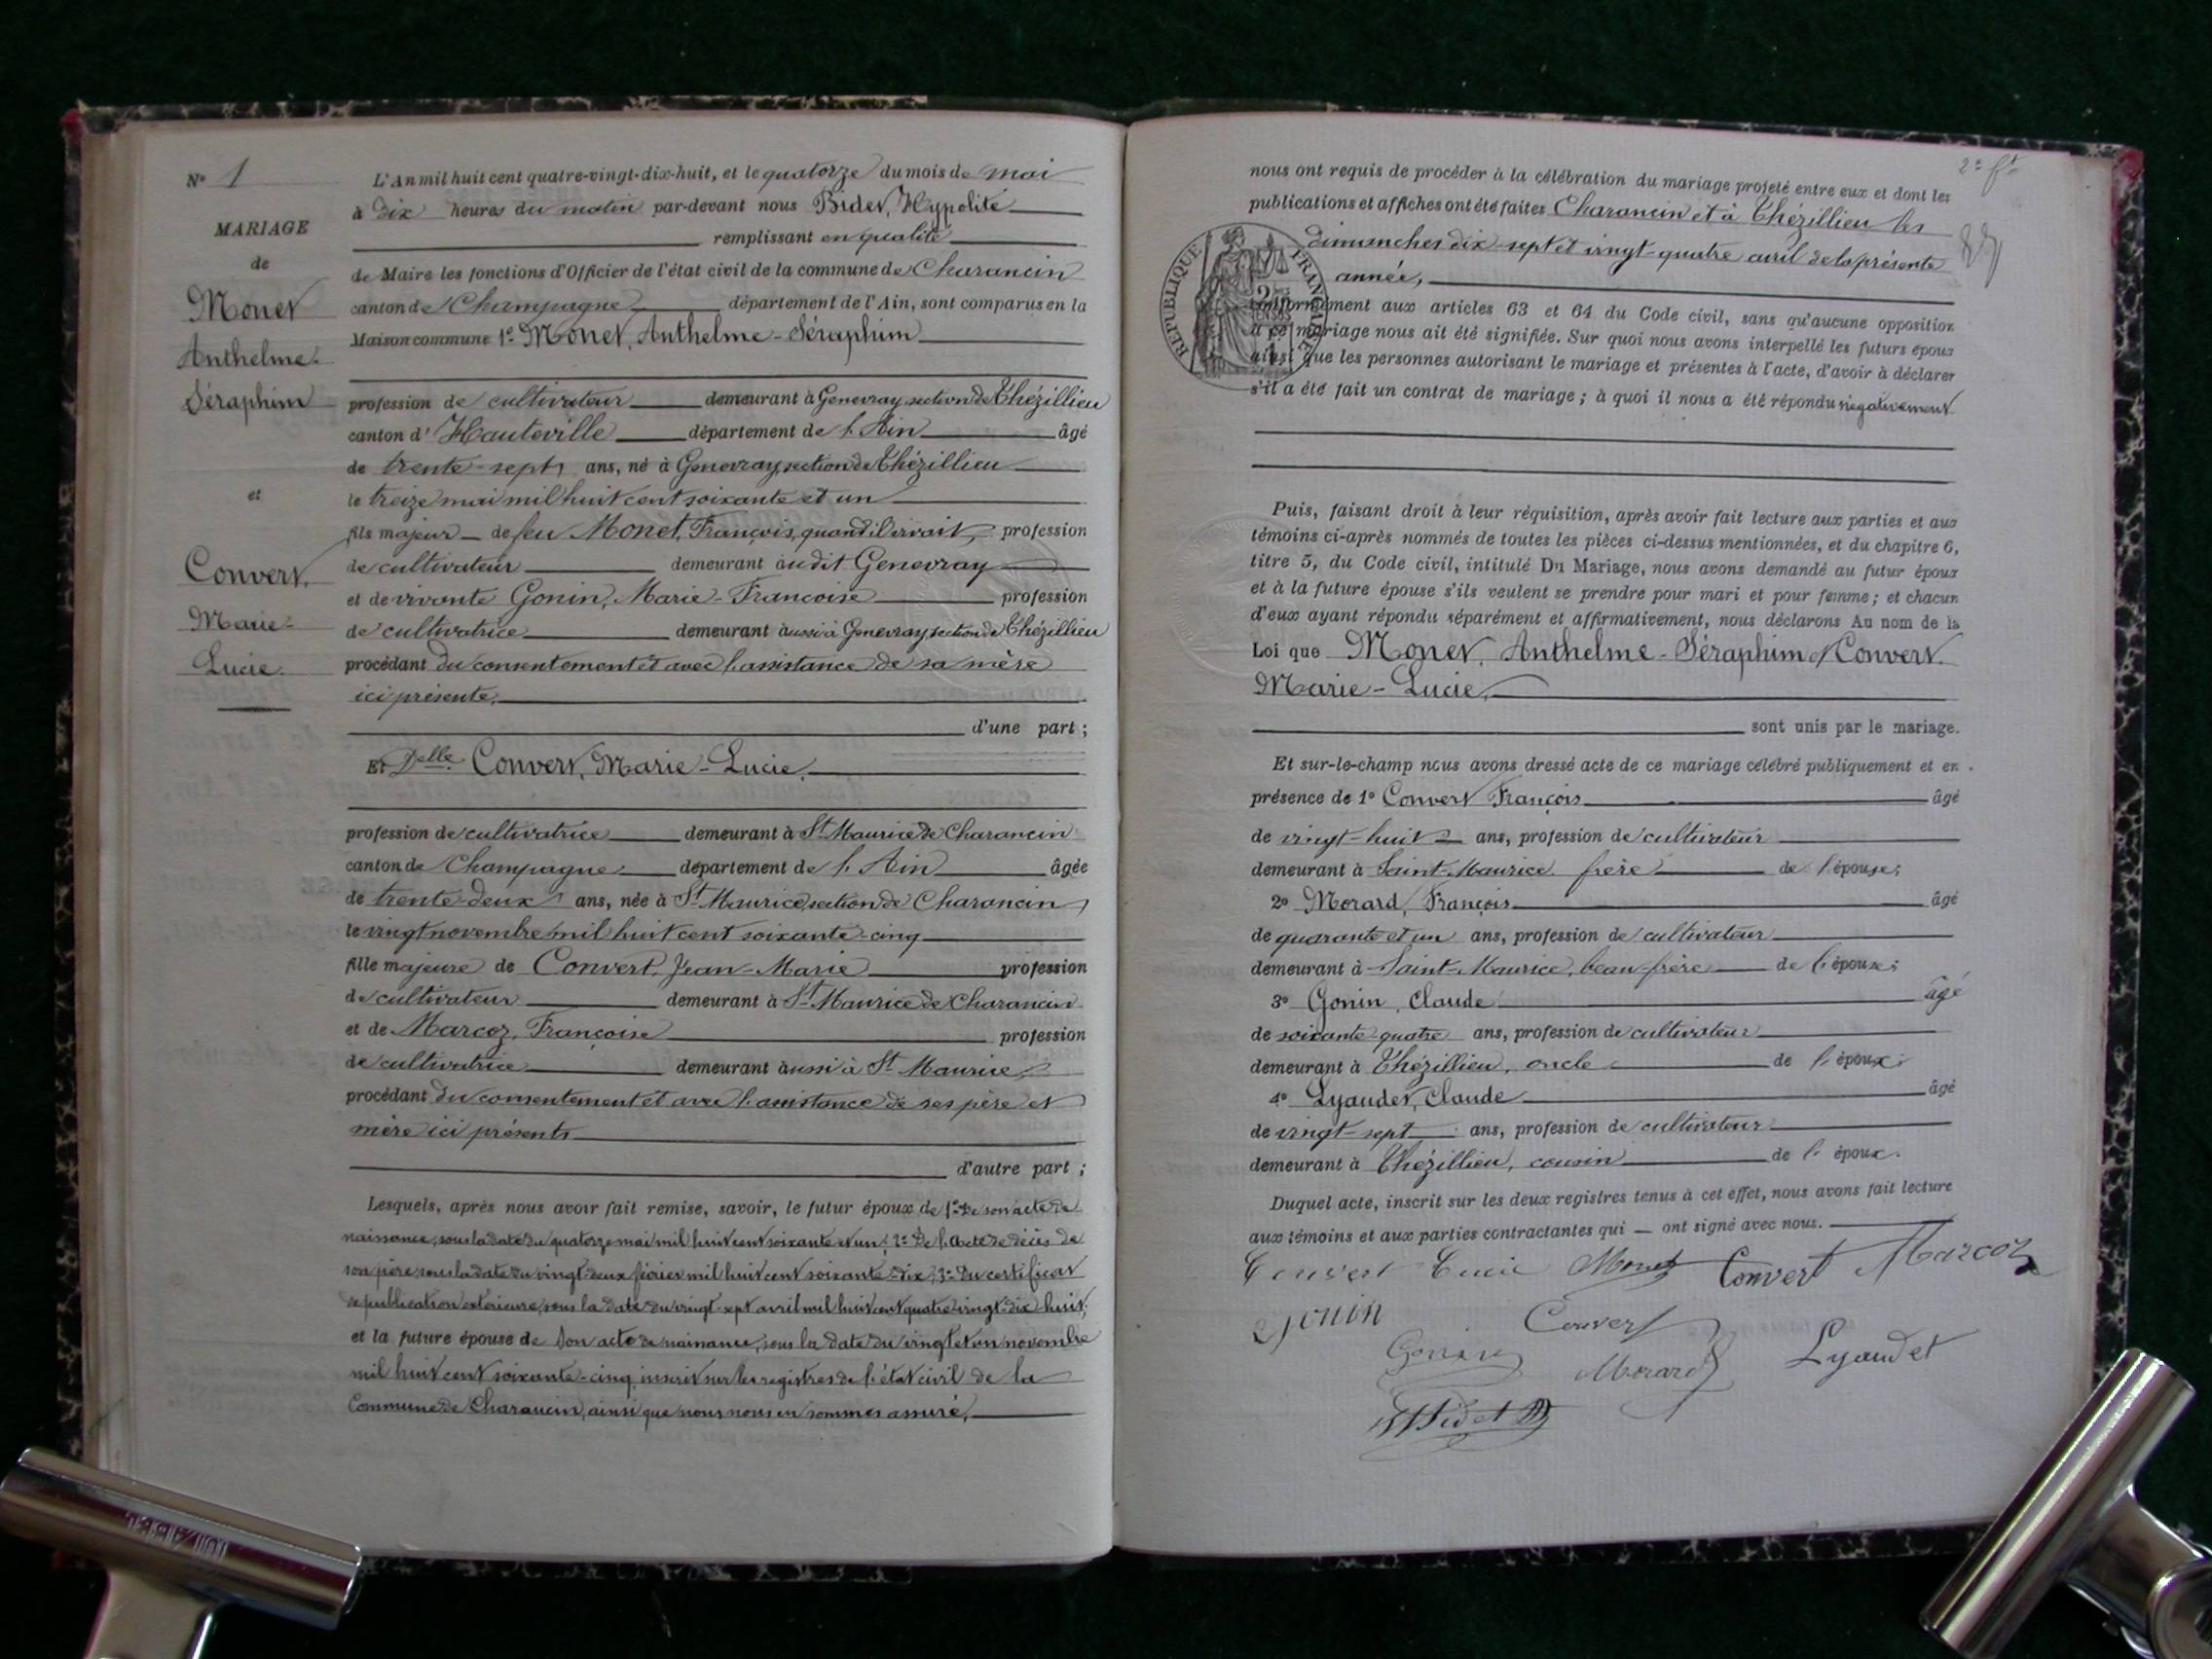 N° 1
MARIAGE
de
Monet
Anthelme-
Séraphim
et
Convert,
Marie-
Lucie.
L'An mil huit cent quatre-vingt-dix-huit, et le quatorze du mois de mai
à dix heures du matin par-devant nous Bidet, Hypolite
remplissant en qualité
de Maire les fonctions d'Officier de l'état civil de la commune de Charancin
canton de Champagne département de l'Ain, sont comparus en la
Maison commune 1° Monet, Anthelme-Séraphim
profession de cultivateur demeurant à Genevray section de Thézillieu
canton d'Hauteville département de l'Ain âgé
de trente-sept ans, né à Genevray, section de Thézillieu
le treize mai mil huit cent soixante et un
fils majeur de feu Monet, François, quand il vivait, profession
de cultivateur demeurant audit Genevray
et de vivante Gonin, Marie-Francoise profession
de cultivatrice demeurant aussi à Genevray section de Thézillieu
procédant du consentement et avec l'assistance de sa mère
ici présente,
d'une part ;
Et Delle Convert, Marie-Lucie,
profession de cultivatrice demeurant à St Maurice de Charancin
canton de Champagne département de l'Ain âgée
de trente-deux ans, née à St Maurice, section de Charancin,
le vingt novembre mil huit cent soixante-cinq
fille majeure de Convert, Jean-Marie profession
de cultivateur demeurant à St Maurice de Charancin
et de Marcoz, Françoise profession
de cultivatrice demeurant aussi à St Maurice,
procédant du consentement et avec l'assistance de ses père et
mère ici présents
d'autre part ;
Lesquels, après nous avoir fait remise, savoir, le futur époux de 1° de son acte de
naissance, sous la date du quatorze mai mil huit cent soixante et un; 2° De l'acte de décès de
son père, sous la date du vingt-deux février mil huit cent soixante-dix; 3° Du certificat
de publication extérieure, sous la date du vingt-sept avril mil huit cent quatre-vingt-dix-huit;
et la future épouse de son acte de naissance, sous la date du vingt et un novembre
mil huit cent soixante-cinq inscrit sur les registres de l'état civil de la
Commune de Charancin, ainsi que nous nous en sommes assuré,
2e ft
nous ont requis de procéder à la célébration du mariage projeté entre eux et dont les
publications et affiches ont été faites Charancin et à Thézillieu les
dimanches dix-sept et vingt-quatre avril de la présente
année,
RÉPUBLIQUE FRANÇAISE
conformément aux articles 63 et 64 du Code civil, sans qu'aucune opposition
à ce mariage nous ait été signifiée. Sur quoi nous avons interpellé les futurs époux
ainsi que les personnes autorisant le mariage et présentes à l'acte, d'avoir à déclarer
s'il a été fait un contrat de mariage ; à quoi il nous a été répondu négativement
Puis, faisant droit à leur réquisition, après avoir fait lecture aux parties et aux
témoins ci-après nommés de toutes les pièces ci-dessus mentionnées, et du chapitre 6,
titre 5, du Code civil, intitulé Du Mariage, nous avons demandé au futur époux
et à la future épouse s'ils veulent se prendre pour mari et pour femme ; et chacun
d'eux ayant répondu séparément et affirmativement, nous déclarons Au nom de la
Loi que Monet, Anthelme-Séraphim et Convert.
Marie-Lucie,
sont unis par le mariage.
Et sur-le-champ nous avons dressé acte de ce mariage célébré publiquement et en
présence de 1° Convert François âgé
de vingt-huit ans, profession de cultivateur
demeurant à Saint-Maurice frère de l'épouse;
2° Morard, François âgé
de quarante et un ans, profession de cultivateur
demeurant à Saint-Maurice, beau-frère de l'épouse;
3° Gonin, Claude âgé
de soixante-quatre ans, profession de cultivateur
demeurant à Thézillieu, oncle de l'époux;
4° Lyaudet, Claude âgé
de vingt-sept ans, profession de cultivateur
demeurant à Thézillieu, cousin de l'époux.
Duquel acte, inscrit sur les deux registres tenus à cet effet, nous avons fait lecture
aux témoins et aux parties contractantes qui ont signé avec nous.
Convert Lucie Monet Convert Marcoz
gonin Convert
Gonin Morard Lyaudet
H Bidet